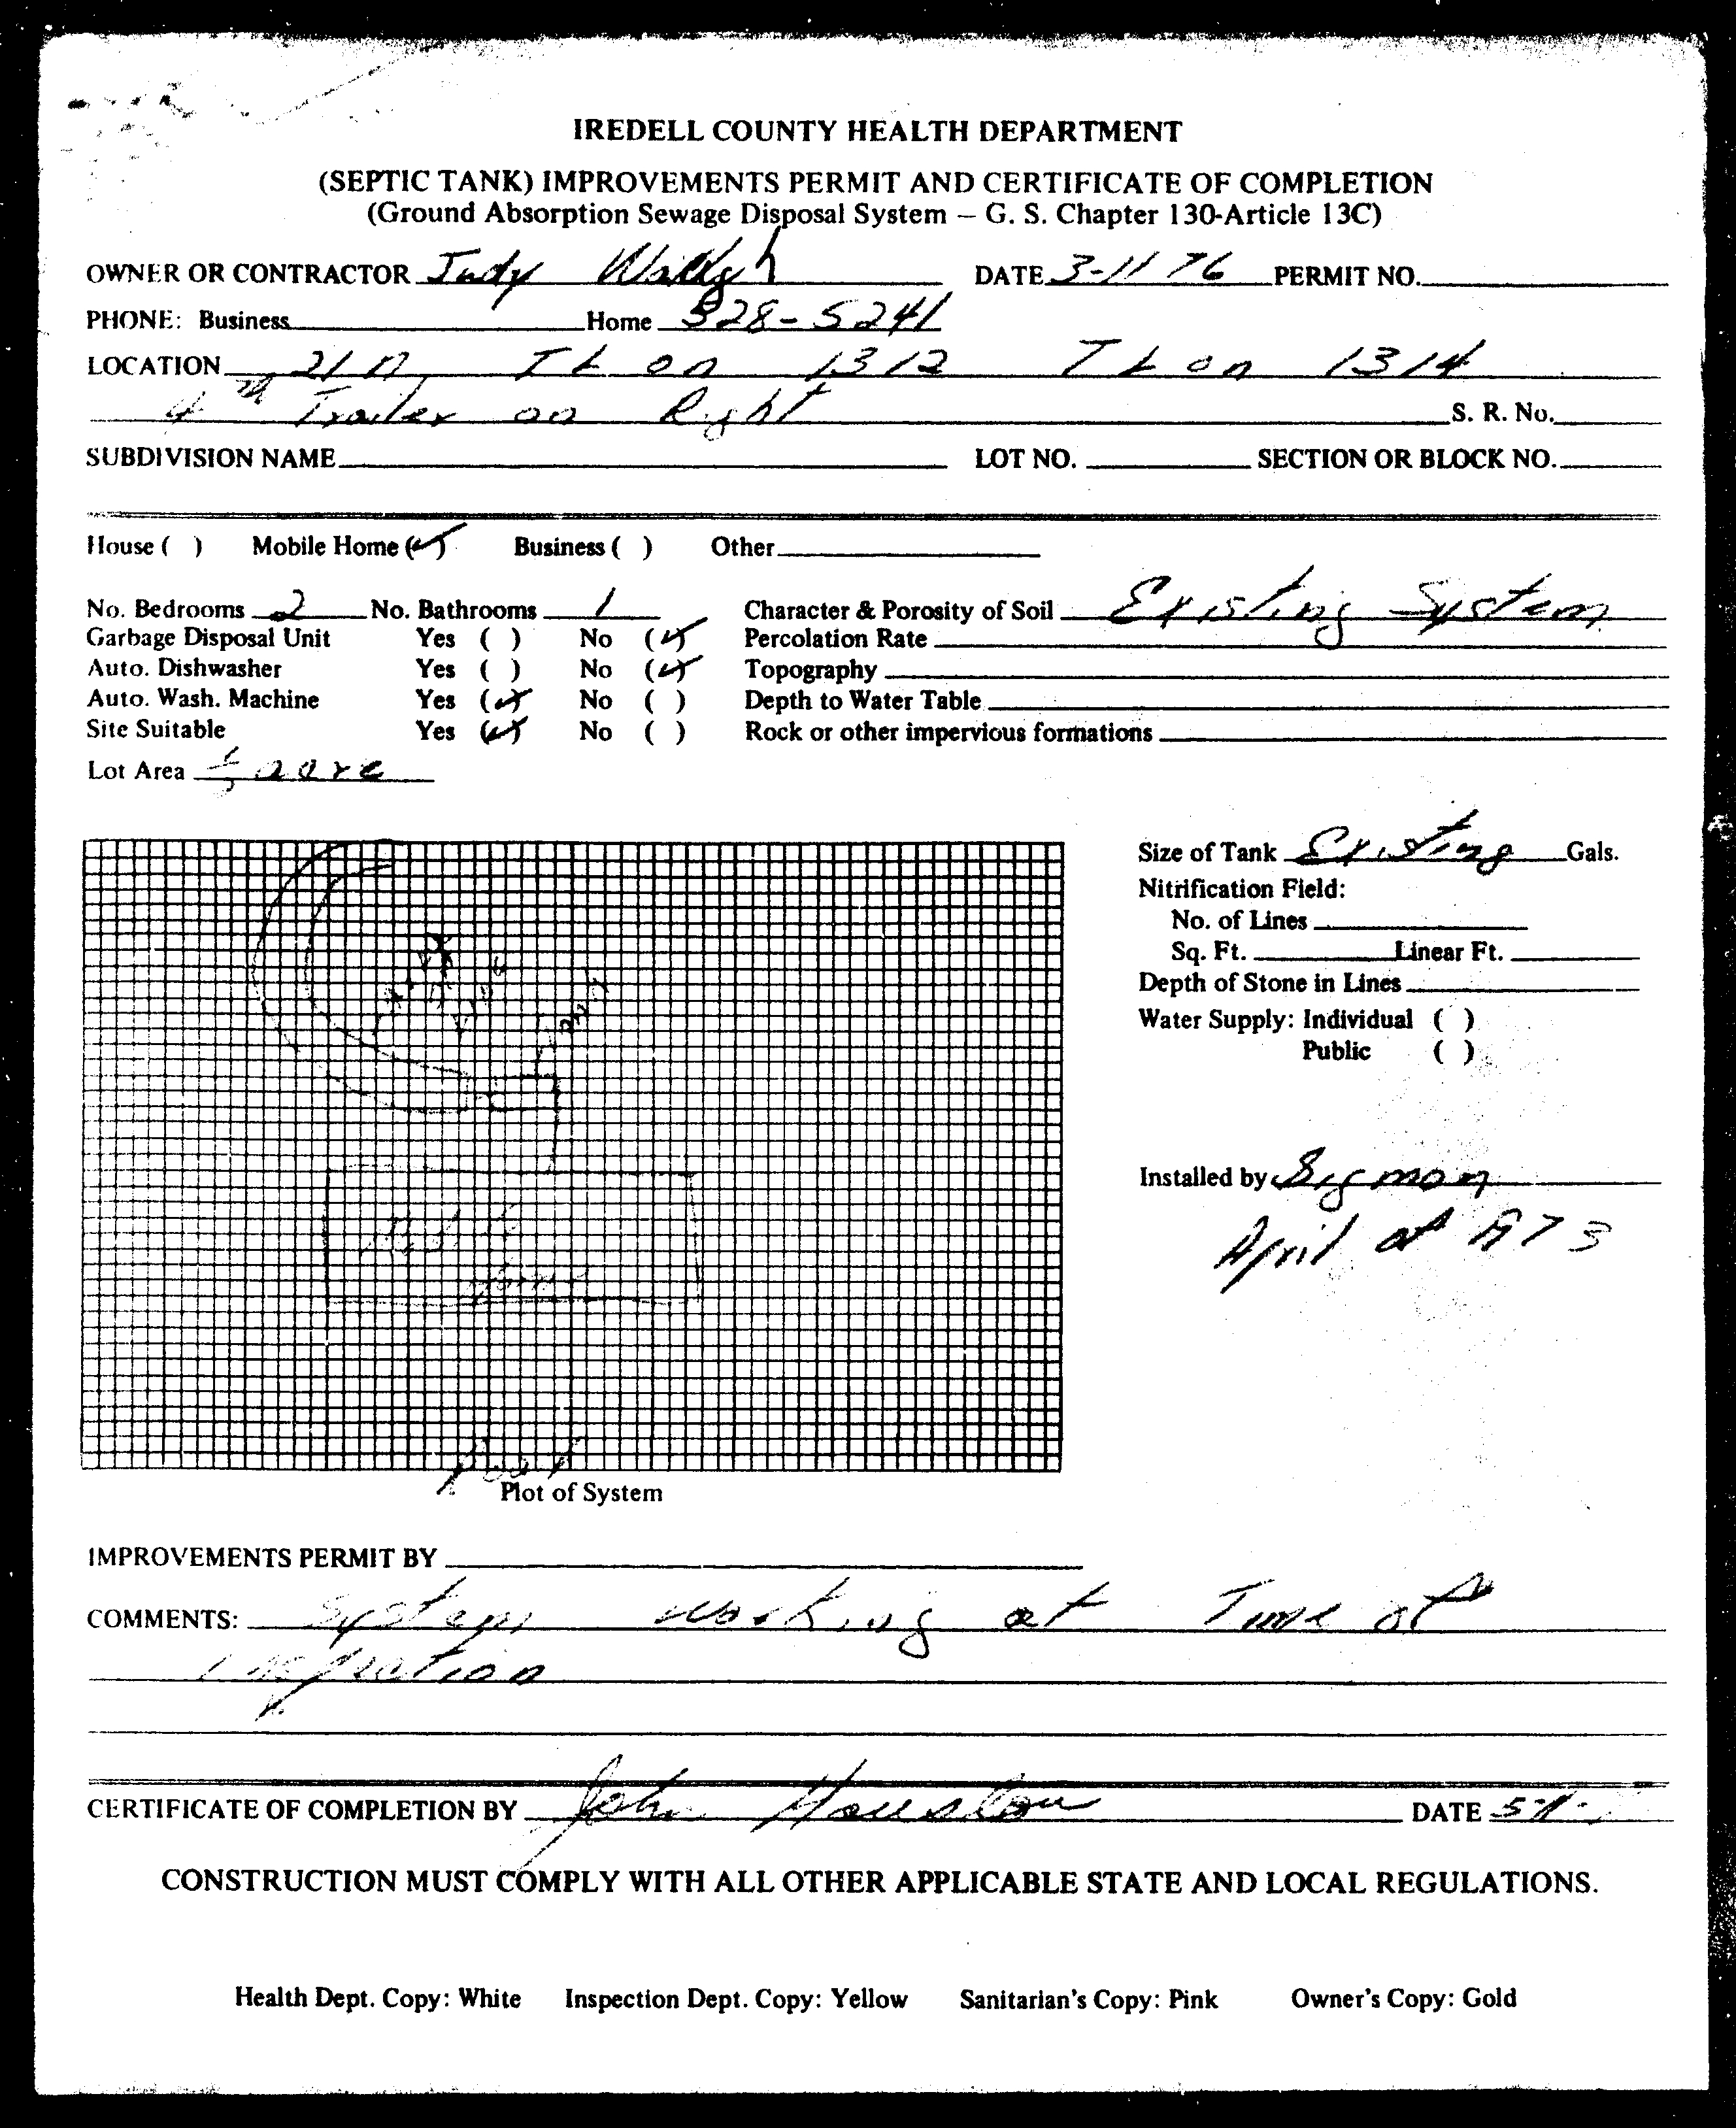 IREDELL COUNTY HEALTH DEPARTMENT
(SEPTIC TANK) IMPROVEMENTS PERMIT AND CERTIFICATE OF COMPLETION
(Ground Absorption Sewage Disposal System – G. S. Chapter 130-Article 13C)
OWNER OR CONTRACTOR Judy DATE 3-11 76 PERMIT NO.
PHONE: Business Home 528-5241
LOCATION 21 N TL on 1312 TL on 1314
4th Trailer on Right S. R. No.
SUBDIVISION NAME LOT NO. SECTION OR BLOCK NO.
House ( ) Mobile Home (✓) Business ( ) Other
No. Bedrooms 2 No. Bathrooms 1 Character & Porosity of Soil Existing System
Garbage Disposal Unit Yes ( ) No (✓) Percolation Rate
Auto. Dishwasher Yes ( ) No (✓) Topography
Auto. Wash. Machine Yes (✓) No ( ) Depth to Water Table
Site Suitable Yes (✓) No ( ) Rock or other impervious formations
Lot Area acre
Size of Tank Existing Gals.
Nitrification Field:
No. of Lines
Sq. Ft. Linear Ft.
Depth of Stone in Lines
Water Supply: Individual ( )
Public ( )
Installed by Sigmon
April of 1973
Home
Plot of System
IMPROVEMENTS PERMIT BY
COMMENTS: System working at Time of
Inspection
CERTIFICATE OF COMPLETION BY John Houston DATE
CONSTRUCTION MUST COMPLY WITH ALL OTHER APPLICABLE STATE AND LOCAL REGULATIONS.
Health Dept. Copy: White Inspection Dept. Copy: Yellow Sanitarian's Copy: Pink Owner's Copy: Gold